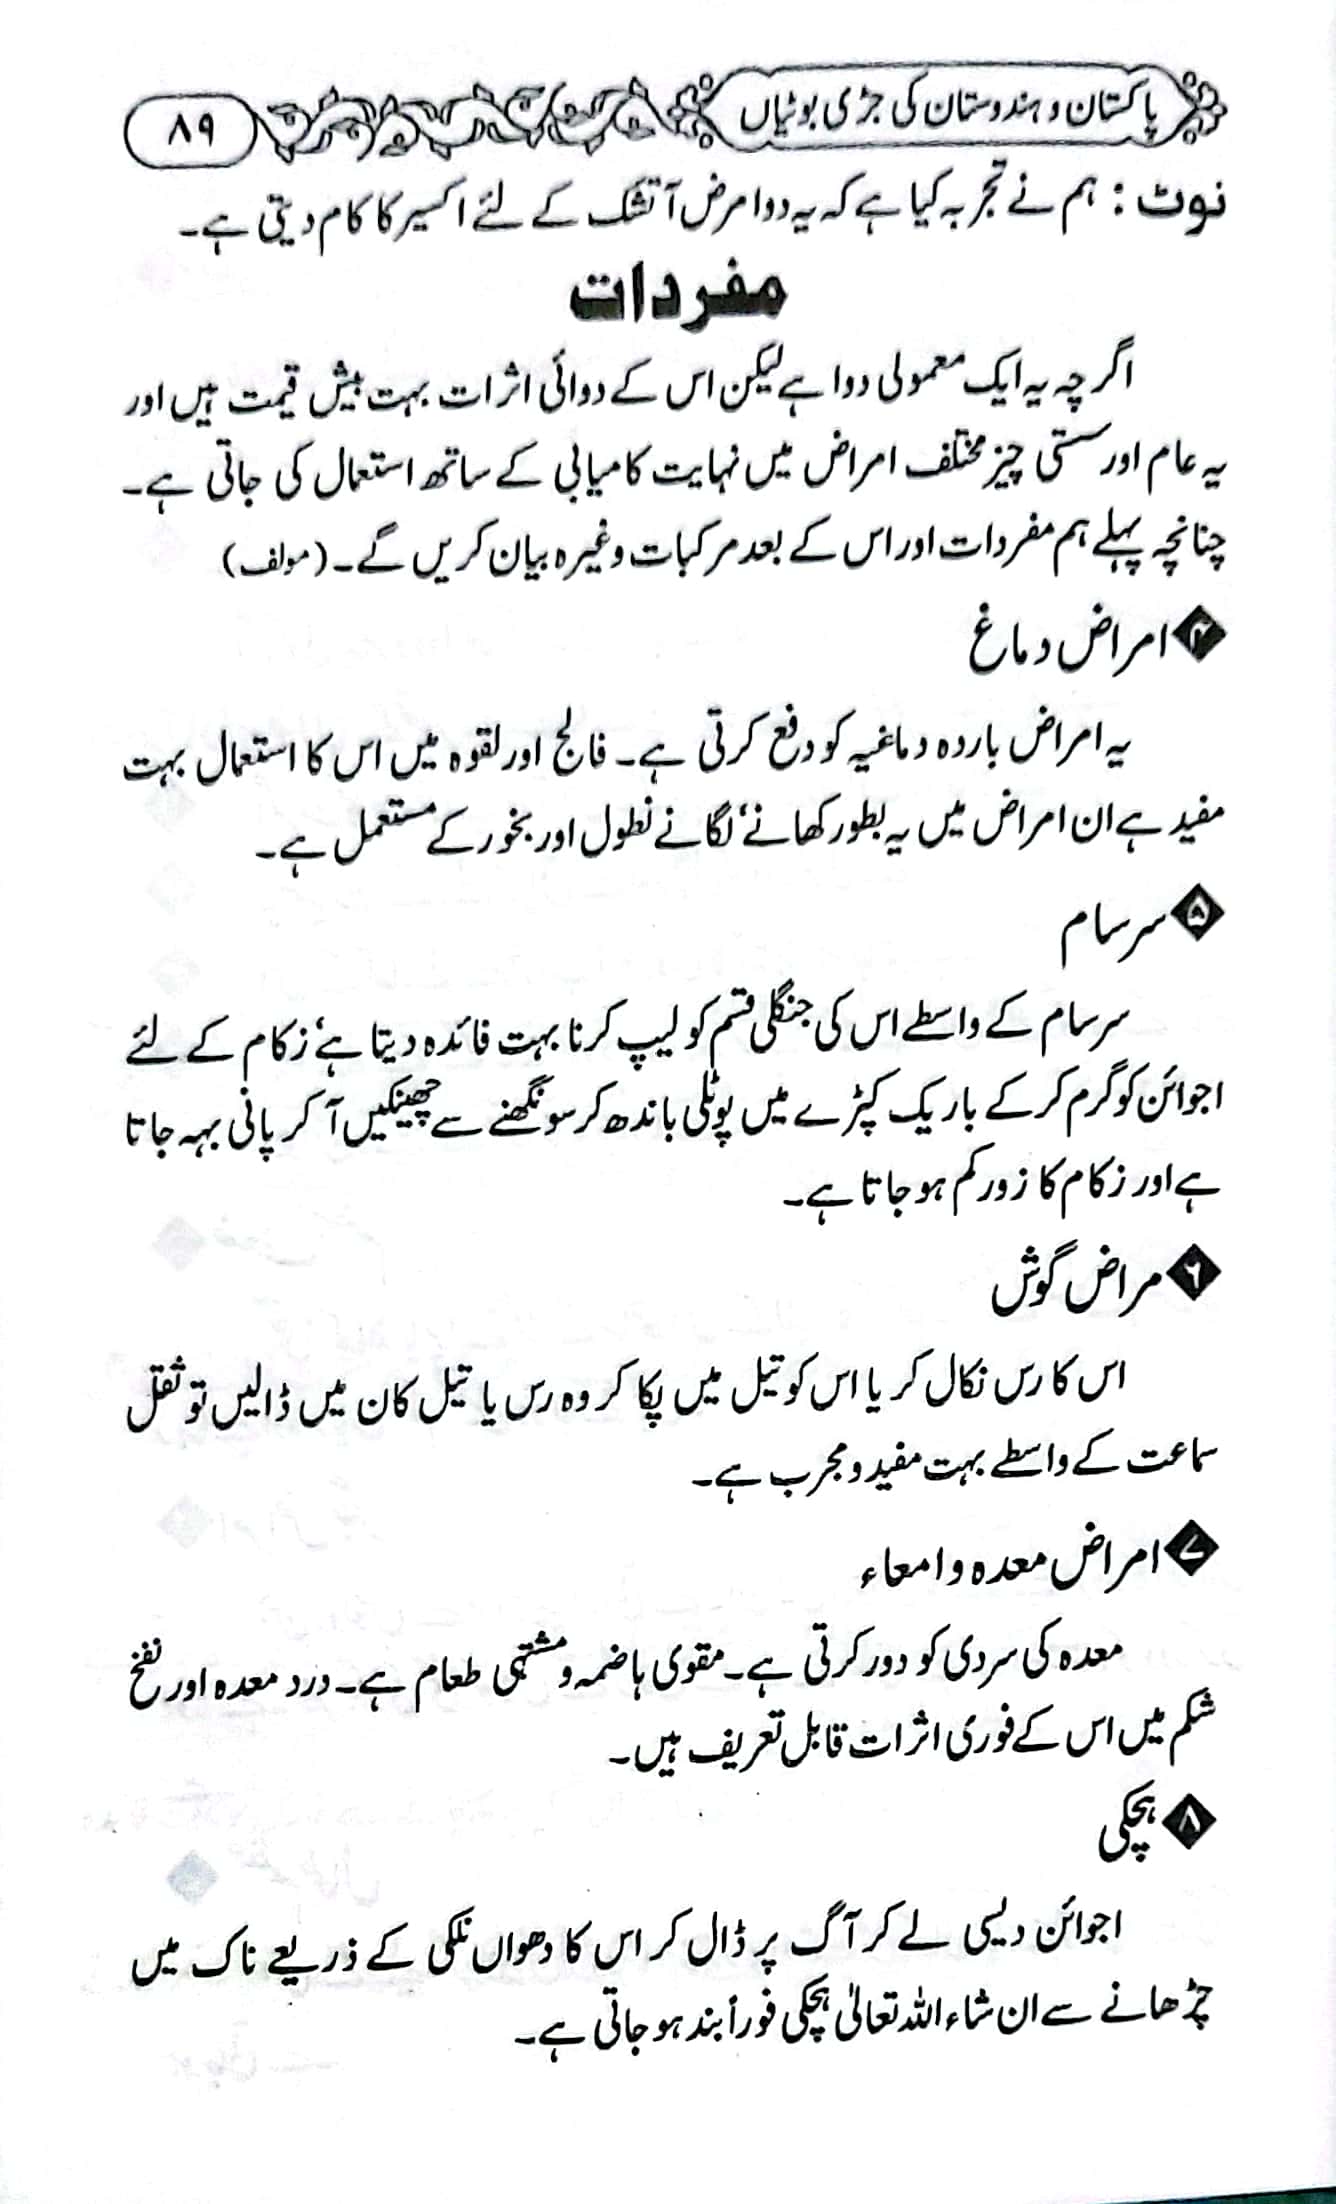 پاکستان و ہندوستان کی جڑی بوٹیاں
۸۹
نوٹ : ہم نے تجربہ کیا ہے کہ یہ دوا مرض آتشک کے لئے اکسیر کا کام دیتی ہے۔
مفردات
اگرچہ یہ ایک معمولی دوا ہے لیکن اس کے دوائی اثرات بہت بیش قیمت ہیں اور
یہ عام اور سستی چیز مختلف امراض میں نہایت کامیابی کے ساتھ استعمال کی جاتی ہے۔
چنانچہ پہلے ہم مفردات اور اس کے بعد مرکبات وغیرہ بیان کریں گے۔ (مولف)
۴ امراض دماغ
یہ امراض باردہ دماغیہ کو دفع کرتی ہے۔ فالج اور لقوہ میں اس کا استعمال بہت
مفید ہے ان امراض میں یہ بطور کھانے‘ لگانے نطول اور بخور کے مستعمل ہے۔
۵ سرسام
سرسام کے واسطے اس کی جنگلی قسم کو لیپ کرنا بہت فائدہ دیتا ہے‘ زکام کے لئے
اجوائن کو گرم کر کے باریک کپڑے میں پوٹلی باندھ کر سونگھنے سے چھینکیں آ کر پانی بہہ جاتا
ہے اور زکام کا زور کم ہو جاتا ہے۔
۶ مراض گوش
اس کا رس نکال کر یا اس کو تیل میں پکا کر وہ رس یا تیل کان میں ڈالیں تو ثقل
سماعت کے واسطے بہت مفید و مجرب ہے۔
۷ امراض معدہ و امعاء
معدہ کی سردی کو دور کرتی ہے۔ مقوی ہاضمہ و مشتہی طعام ہے۔ درد معدہ اور نفخ
شکم میں اس کے فوری اثرات قابل تعریف ہیں۔
۸ ہچکی
اجوائن دیسی لے کر آگ پر ڈال کر اس کا دھواں نلکی کے ذریعے ناک میں
چڑھانے سے ان شاء اللہ تعالیٰ ہچکی فوراً بند ہو جاتی ہے۔